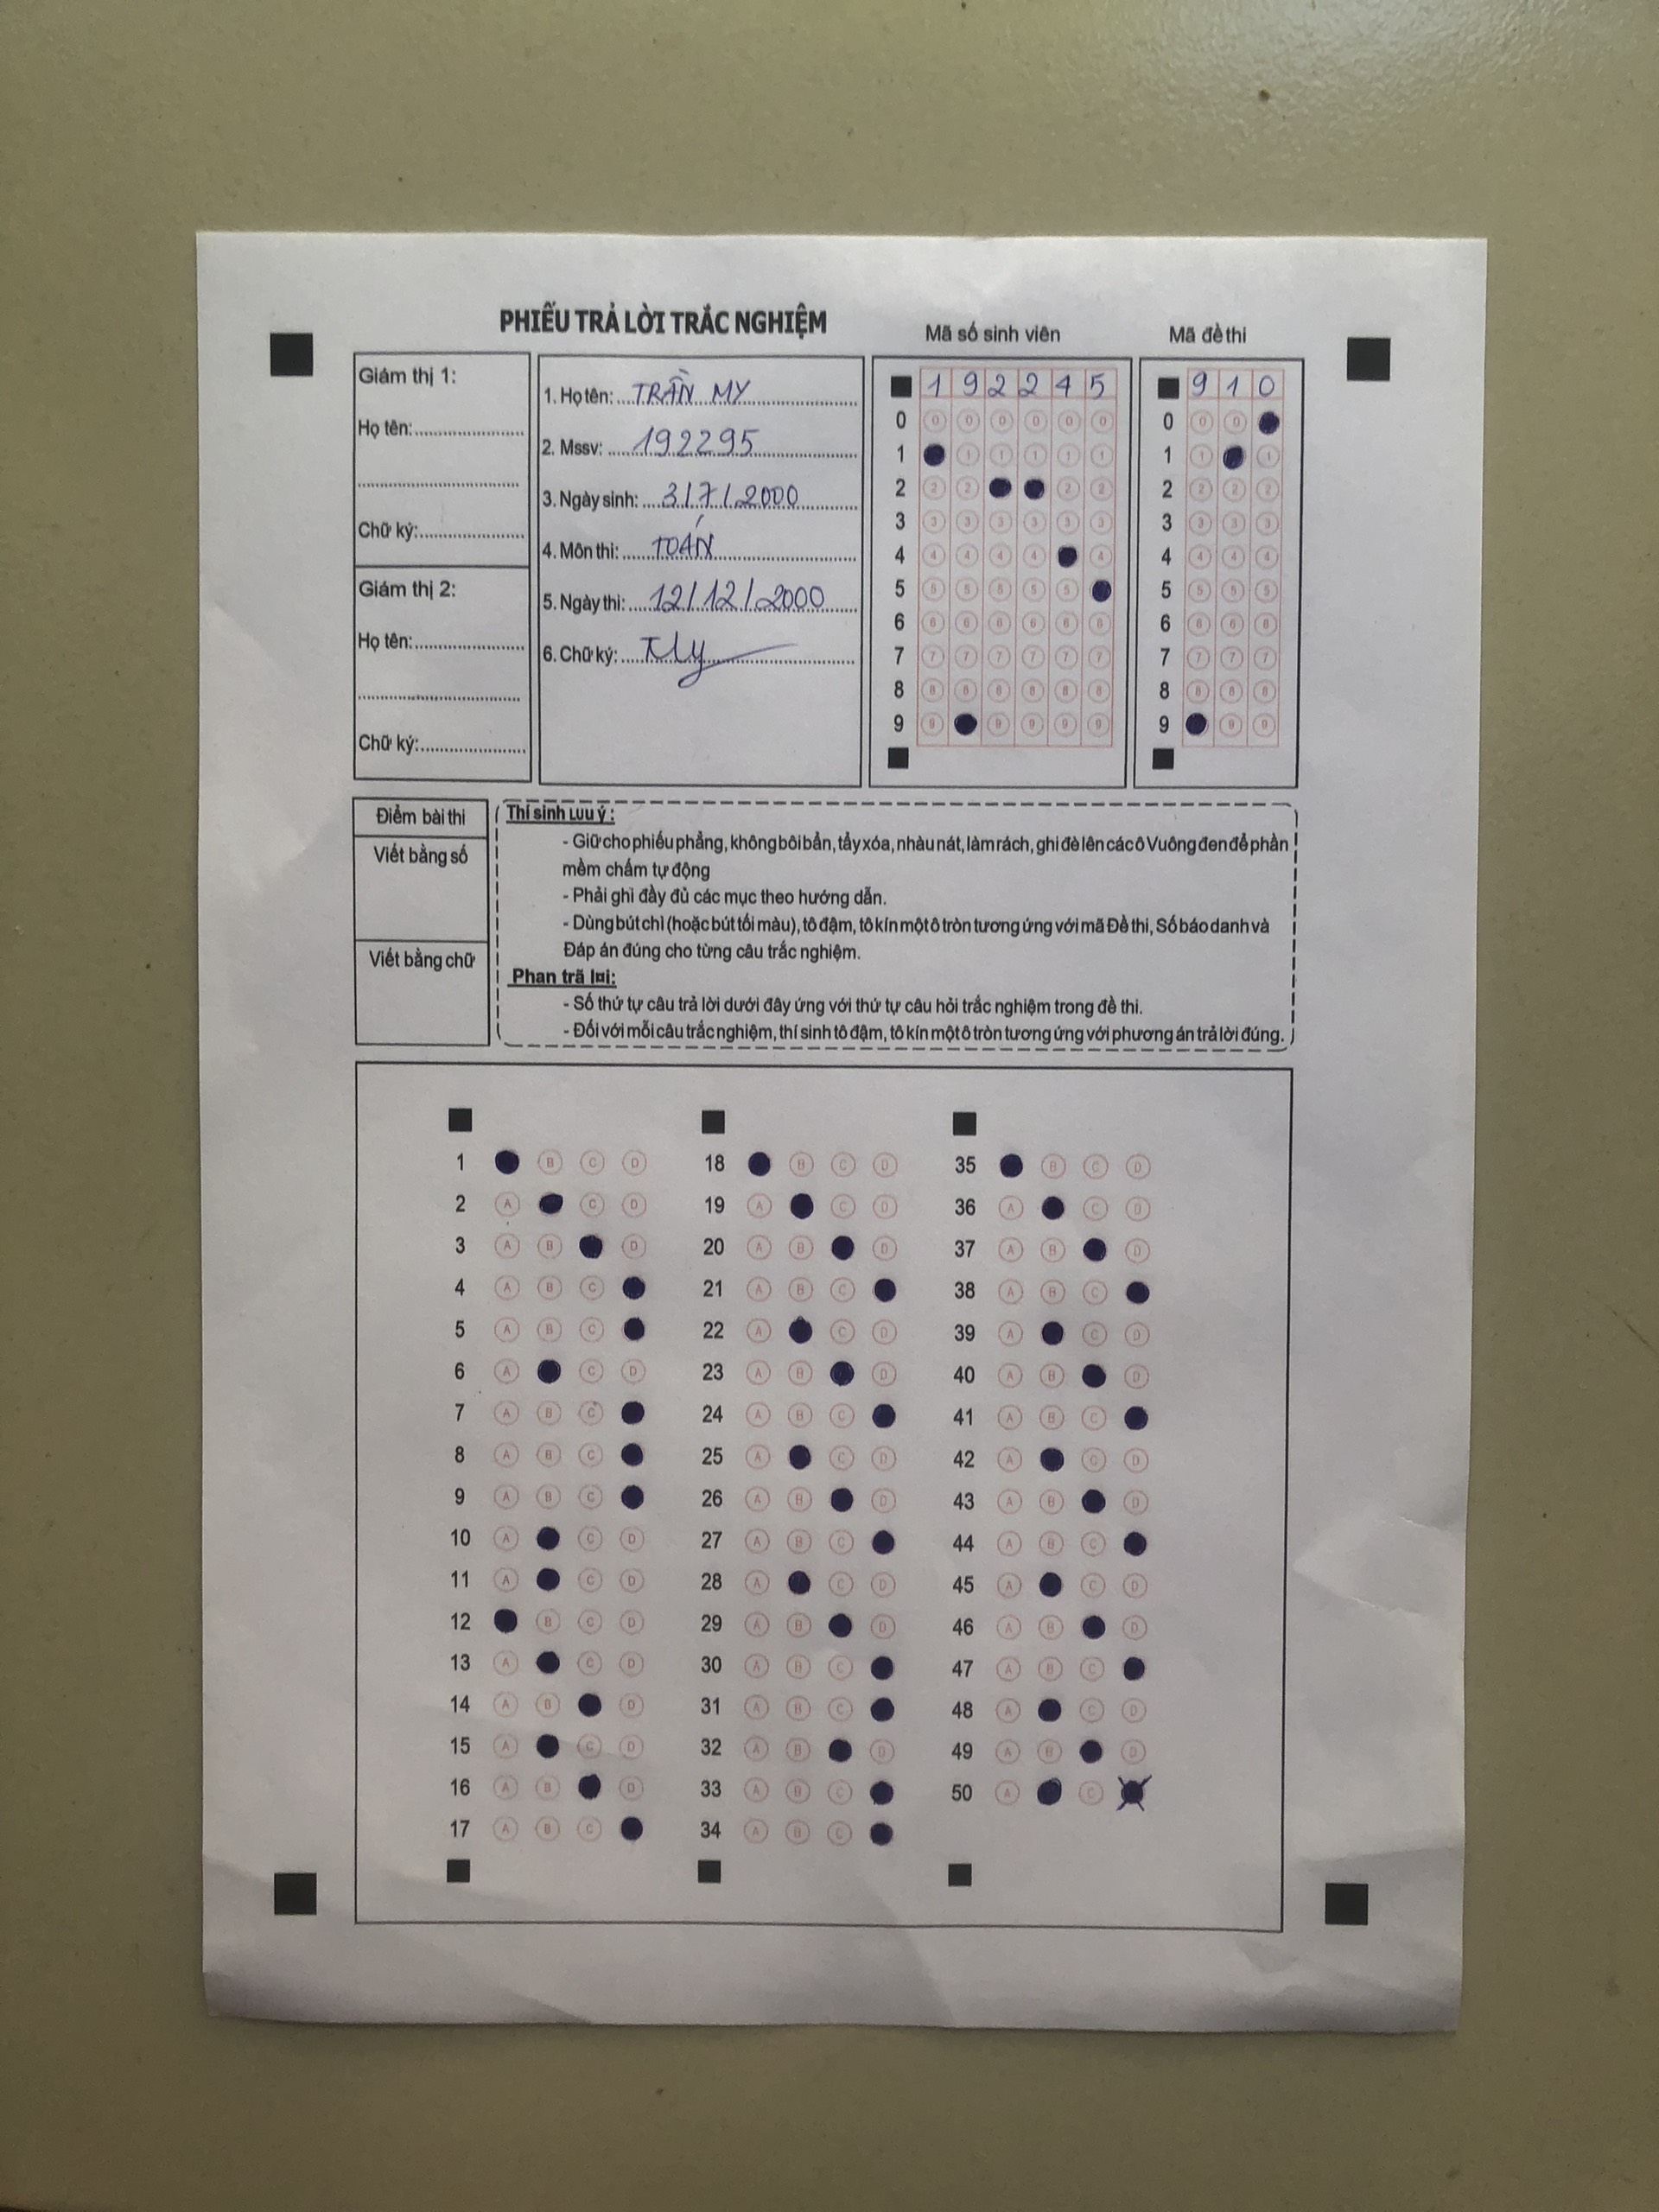 PHIẾU TRẢ LỜI TRẮC NGHIỆM
Giám thị 1:
Họ tên:
Chữ ký:
Giám thị 2:
Họ tên:
Chữ ký:
1. Họ tên: TRẦN MY
2. Mssv: 192295
3. Ngày sinh: 3/7/2000
4. Môn thi: TOÁN
5. Ngày thi: 12/12/2000
6. Chữ ký: TMy
Mã số sinh viên
1 9 2 2 4 5
0 0 0 0 0 0 0
1 1 1 1 1 1
2 2 2 2 2
3 3 3 3 3 3 3
4 4 4 4 4 4
5 5 5 5 5 5
6 6 6 6 6 6 6
7 7 7 7 7 7 7
8 8 8 8 8 8 8
9 9 9 9 9 9
Mã đề thi
9 1 0
0 0 0
1 1 1
2 2 2 2
3 3 3 3
4 4 4 4
5 5 5 5
6 6 6 6
7 7 7 7
8 8 8 8
9 9 9
Điểm bài thi
Viết bằng số
Viết bằng chữ
Thí sinh Lưu ý :
- Giữ cho phiếu phẳng, không bôi bẩn, tẩy xóa, nhàu nát, làm rách, ghi đè lên các ô Vuông đen để phần
mềm chấm tự động
- Phải ghi đầy đủ các mục theo hướng dẫn.
- Dùng bút chì (hoặc bút tối màu), tô đậm, tô kín một ô tròn tương ứng với mã Đề thi, Số báo danh và
Đáp án đúng cho từng câu trắc nghiệm.
Phan trã l¤i:
- Số thứ tự câu trả lời dưới đây ứng với thứ tự câu hỏi trắc nghiệm trong đề thi.
- Đối với mỗi câu trắc nghiệm, thí sinh tô đậm, tô kín một ô tròn tương ứng với phương án trả lời đúng.
1 B C D
2 A C D
3 A B D
4 A B C
5 A B C
6 A C D
7 A B C
8 A B C
9 A B C
10 A C D
11 A C D
12 B C D
13 A C D
14 A B D
15 A C D
16 A B D
17 A B C
18 B C D
19 A C D
20 A B D
21 A B C
22 A C D
23 A B D
24 A B C
25 A C D
26 A B D
27 A B C
28 A C D
29 A B D
30 A B C
31 A B C
32 A B D
33 A B C
34 A B C
35 B C D
36 A C D
37 A B D
38 A B C
39 A C D
40 A B D
41 A B C
42 A C D
43 A B D
44 A B C
45 A C D
46 A B D
47 A B C
48 A C D
49 A B D
50 A C